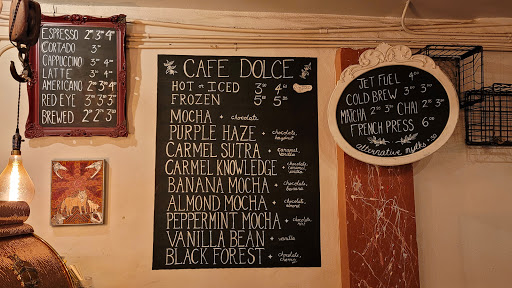 ESPRESSO 2⁵⁰ 3⁰⁰ 4
CORTADO 3⁵⁰
CAPPUCCINO 3⁵⁰ 4
LATTE 3⁵⁰ 4
AMERICANO 2⁵⁰ 3⁰⁰ 3⁵⁰
RED EYE 3⁰⁰ 3⁵⁰ 3
BREWED 2 2⁵⁰ 3
CAFE DOLCE
HOT - ICED 3⁵⁰ 4⁵⁰
FROZEN 5⁰⁰ 5⁵⁰
MOCHA + chocolate
PURPLE HAZE + chocolate,
CARMEL SUTRA + caramel,
vanilla
CARMEL KNOWLEDGE + chocolate,
caramel,
vanilla
BANANA MOCHA + chocolate,
banana
ALMOND MOCHA + chocolate,
almond
PEPPERMINT MOCHA + chocolate,
mint
VANILLA BEAN + vanilla
BLACK FOREST + chocolate,
cherry
JET FUEL 4
COLD BREW 3⁰⁰ 3⁵⁰
MATCHA 2⁵⁰ 3⁵⁰ CHAI 2⁵⁰ 3⁵⁰
FRENCH PRESS 6⁰⁰
alternative mylks +.50